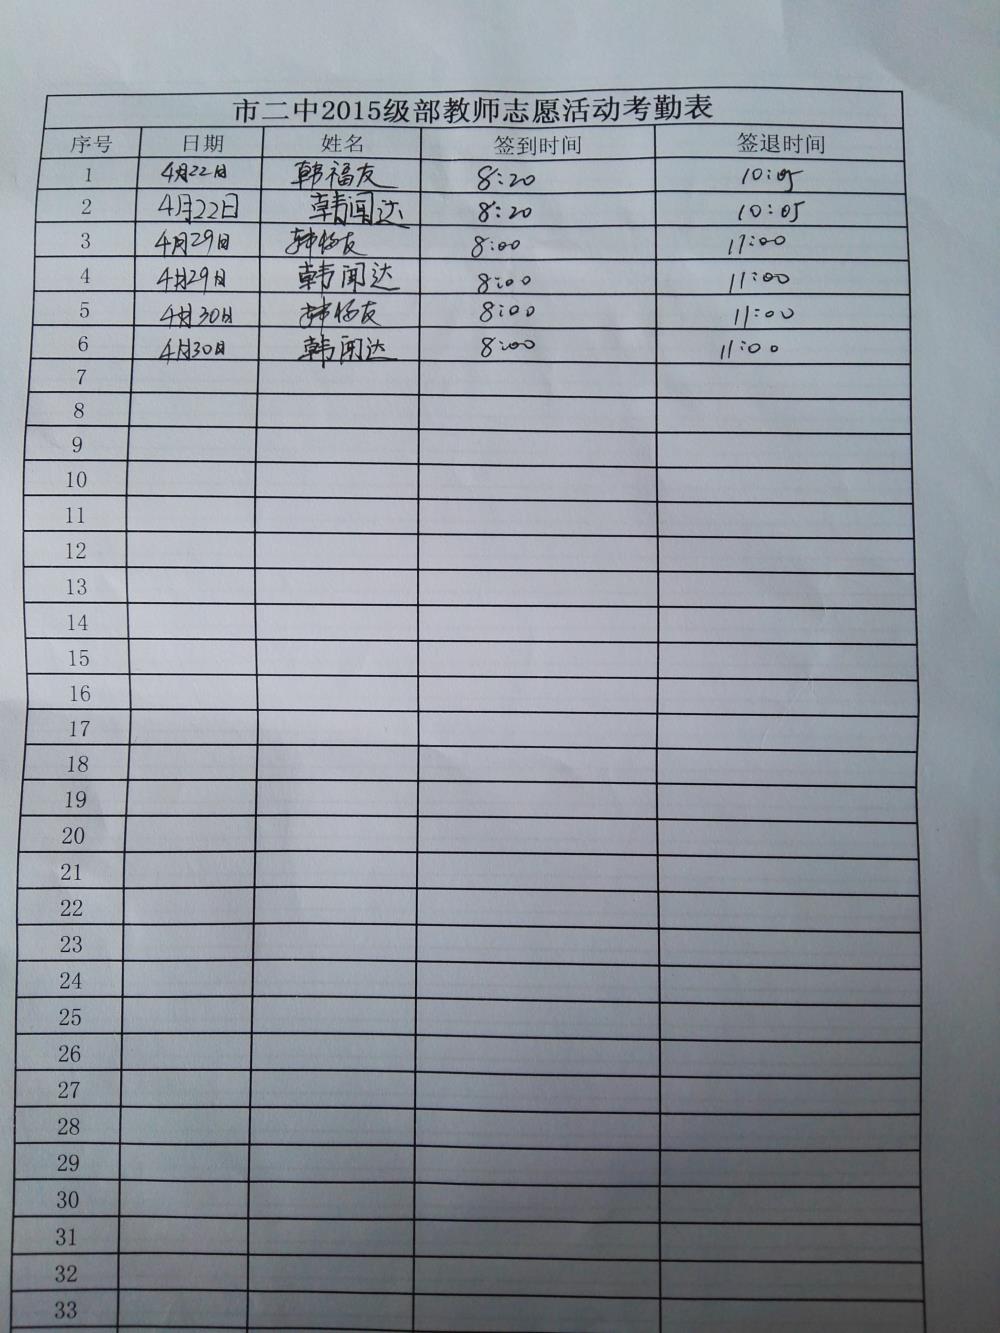 市二中2015级部教师志愿活动考勤表
序号 日期 姓名 签到时间 签退时间
1 4月22日 韩福友 8:20 10:05
2 4月22日 韩闻达 8:20 10:05
3 4月29日 韩福友 8:00 11:00
4 4月29日 韩闻达 8:00 11:00
5 4月30日 韩福友 8:00 11:00
6 4月30日 韩闻达 8:00 11:00
7
8
9
10
11
12
13
14
15
16
17
18
19
20
21
22
23
24
25
26
27
28
29
30
31
32
33